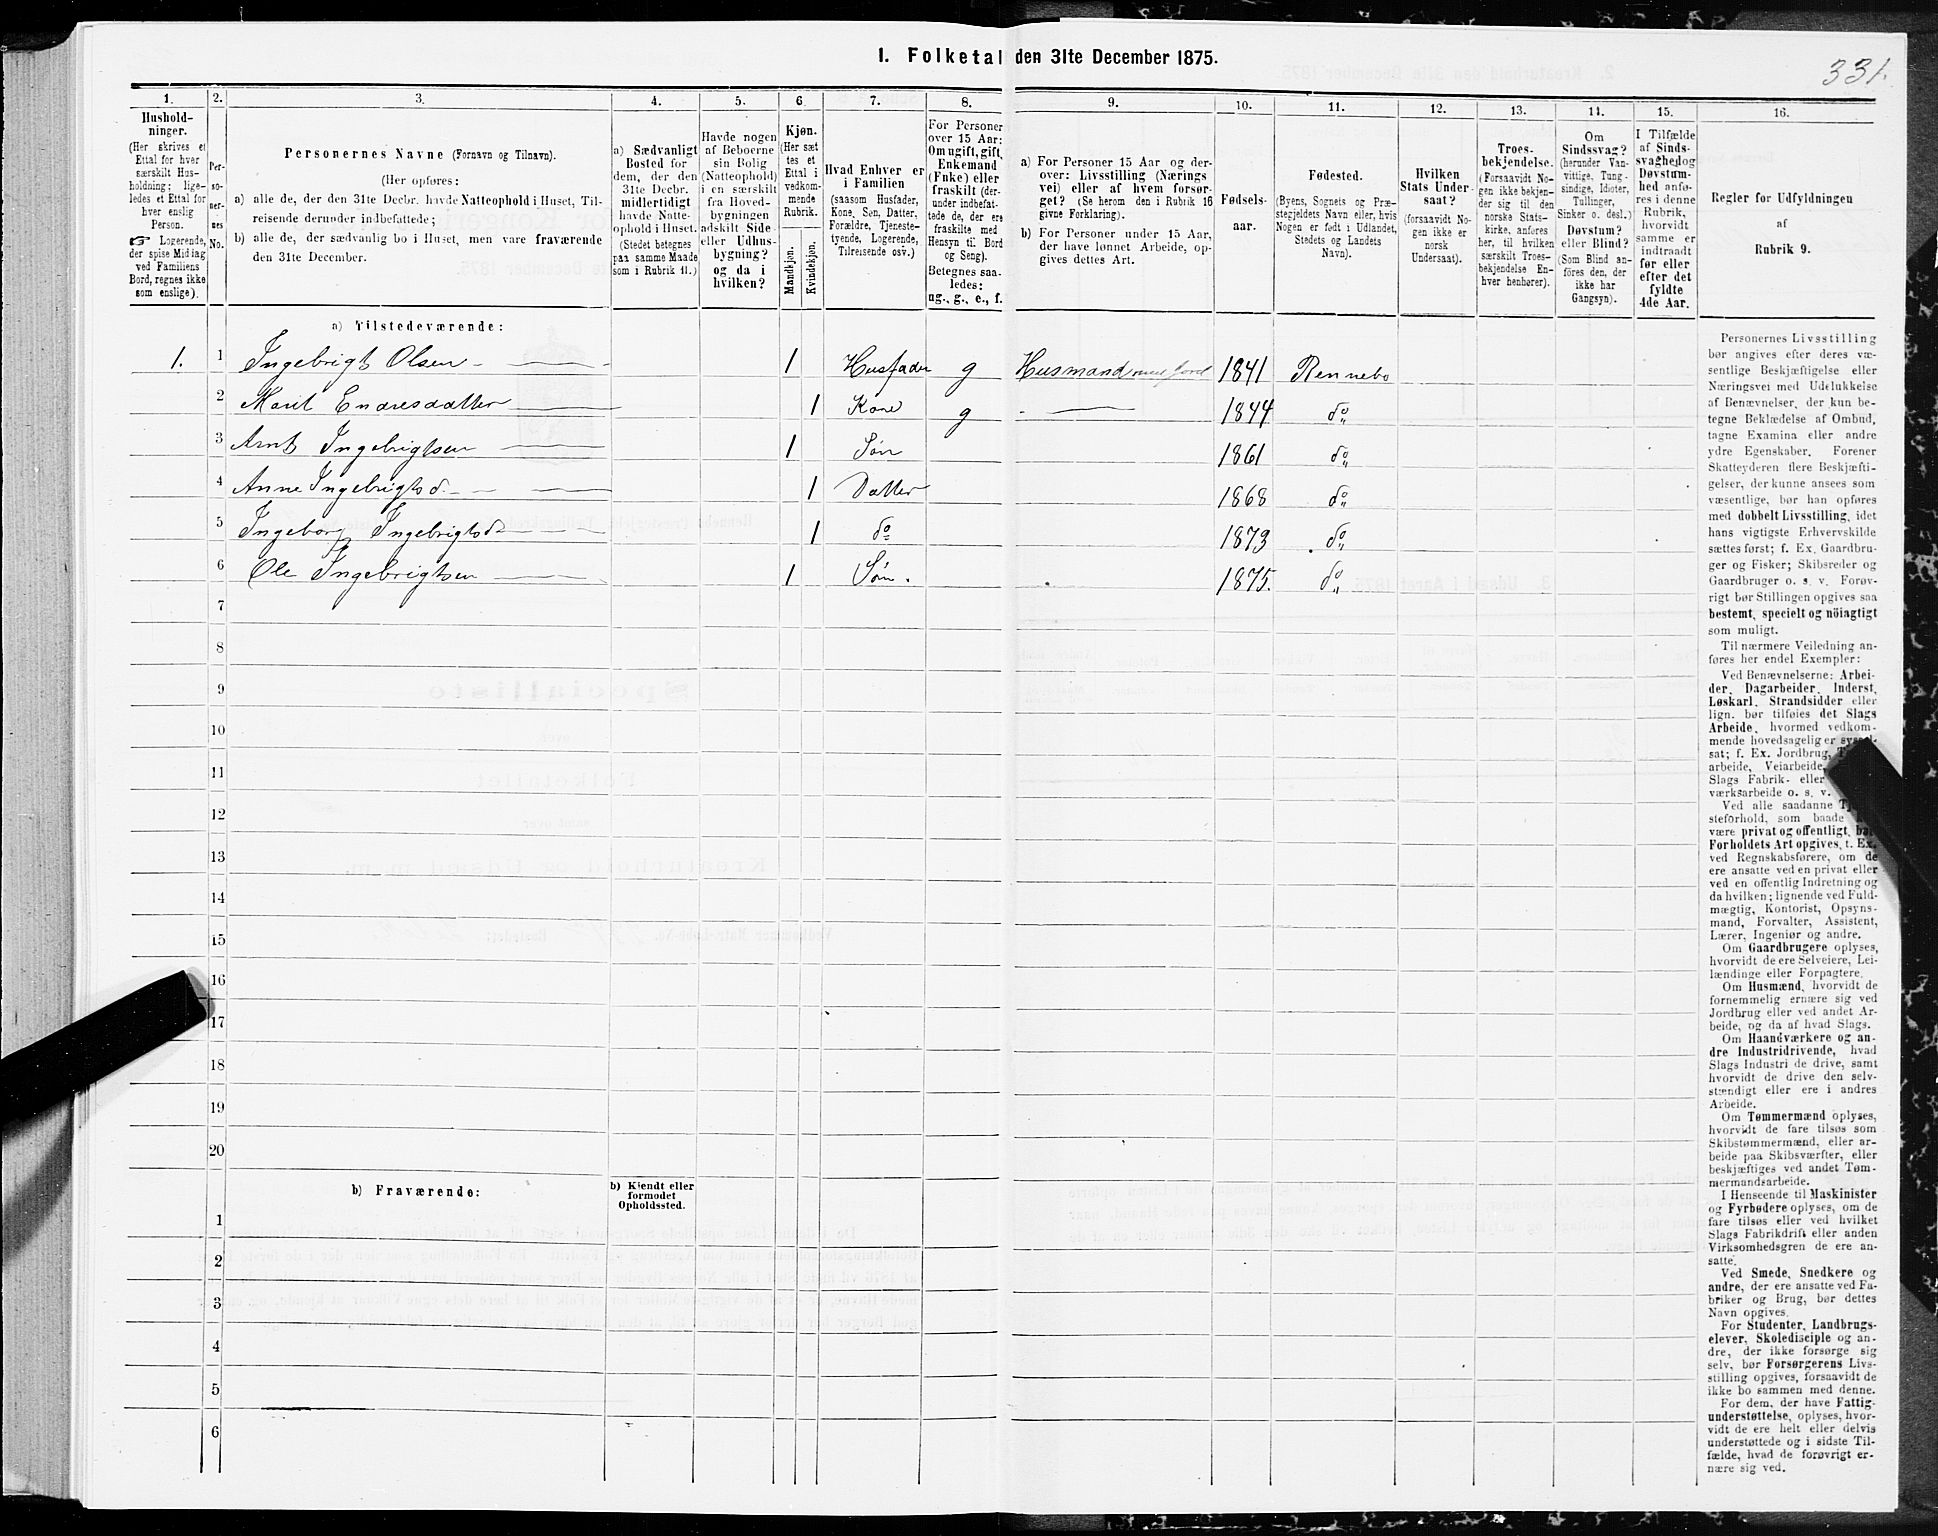 331.
1. Folketal den 31te December 1875.
1. 2. 3. 4. 5. 6. 7. 8. 9. 10. 11. 12. 13. 14. 15. 16.
Husholdninger.
(Her skrives et
Ettal for hver
særskilt Hus-
holdning; lige-
ledes et Ettal for
hver enslig
Person.
☞ Logerende,
der spise Middag
ved Familiens
Bord, regnes ikke
som enslige).
Per-
so-
ner-
nes
No.
Personernes Navne (Fornavn og Tilnavn).
(Her opføres:
a) alle de, der den 31te Decbr. havde Natteophold i Huset, Til-
reisende derunder indbefattede;
b) alle de, der sædvanlig bo i Huset, men vare fraværende
den 31te December.
a) Sædvanligt
Bosted for
dem, der den
31te Decbr.
midlertidigt
havde Natte-
ophold i Huset.
(Stedet betegnes
paa samme Maade
som i Rubrik 11.)
Havde nogen
af Beboerne
sin Bolig
(Natteophold)
i en særskilt
fra Hoved-
bygningen
adskilt Side-
eller Udhus-
bygning?
og da i
hvilken?
Kjøn.
(Her sæt
tes et
Ettal i
vedkom-
mende
Rubrik.
Mandkjøn.
Kvindekjøn.
Hvad Enhver er
i Familien
(saasom Husfader,
Kone, Søn, Datter,
Forældre, Tjeneste-
tyende, Logerende,
Tilreisende osv.)
For Personer
over 15 Aar:
Om ugift, gift,
Enkemand
(Enke) eller
fraskilt (der-
under indbefat-
tede de, der ere
fraskilte med
Hensyn til Bord
og Seng).
Betegnes saa-
ledes:
ug., g., e., f.
a) For Personer 15 Aar og der-
over: Livsstilling (Nærings
vei) eller af hvem forsør-
get? (Se herom den i Rubrik 16
givne Forklaring).
b) For Personer under 15 Aar,
der have lønnet Arbeide, op-
gives dettes Art.
Fødsels-
aar.
Fødested.
(Byens, Sognets og Præ-
stegjeldets Navn eller, hvis
Nogen er født i Udlandet,
Stedets og Landets
Navn).
Hvilken
Stats Under-
saat?
(forsaavidt No-
gen ikke er
norsk
Undersaat).
Troes-
bekjendelse.
(Forsaavidt No-
gen ikke bekjen-
der sig til den
norske Stats-
kirke, anføres
her, til hvilken
særskilt Troes-
bekjendelse En-
hver henhører).
Om
Sindssvag?
(herunder Van-
vittige, Tung-
sindige, Idioter,
Tullinger,
Sinker o. desl.)
Døvstum?
eller Blind?
(Som Blind an-
føres den, der
ikke har
Gangsyn).
I Tilfælde
af Sinds-
svaghed og
Døvstum-
hed anfø-
res i denne
Rubrik,
hvorvidt
samme er
indtraadt
før eller
efter det
fyldte
4de Aar.
Regler for Udfyldningen
af
Rubrik 9.
a) Tilstedeværende:
1. 1 Ingebrigt Olsen 1 Husfader g Husmand med Jord 1841 Rennebo
2 Marit Endresdatter 1 Kone g 1844 do
3 Arnt Ingebrigtsen 1 Søn 1861 do
4 Anne Ingebrigtsd. 1 Datter 1868 do
5 Ingeborg Ingebrigtsd 1 do 1873 do
6 Ole Ingebrigtsen 1 Søn. 1875. do
7
8
9
10
11
12
13
14
15
16
17
18
19
20
b) Fraværende:
b) Kjendt eller
formodet
Opholdssted.
1
2
3
4
5
6
Personernes Livsstilling
bør angives efter deres væ-
sentlige Beskjæftigelse eller
Næringsvei med Udelukkelse
af Benævnelser, der kun be-
tegne Beklædelse af Ombud,
tagne Examina eller andre
ydre Egenskaber. Forener
Skatteyderen flere Beskjæfti-
gelser, der kunne ansees som
væsentlige, bør han opføres
med dobbelt Livsstilling, idet
hans vigtigste Erhvervskilde
sættes først; f. Ex. Gaardbru-
ger og Fisker; Skibsreder og
Gaardbruger o. s. v. Forøv-
rigt bør Stillingen opgives saa
bestemt, specielt og nöiagtigt
som muligt.
Til nærmere Veiledning an-
føres her endel Exempler:
Ved Benævnelserne: Arbei-
der, Dagarbeider, Inderst,
Løskarl, Strandsidder eller
lign. bør tilføies det Slags
Arbeide, hvormed vedkom-
mende hovedsagelig er syssel-
sat; f. Ex. Jordbrug,
arbeide, Veiarbeide,
Slags Fabrik- eller
værksarbeide o. s. v.
Ved alle saadanne
steforhold, som baade
være privat og offentligt, bør
Forholdets Art opgives, f. Ex.
ved Regnskabsførere, om de
ere ansatte ved en privat eller
ved en offentlig Indretning og
da hvilken; lignende ved Fuld-
mægtig, Kontorist, Opsyns-
mand, Forvalter, Assistent,
Lærer, Ingeniør og andre.
Om Gaardbrugere oplyses,
hvorvidt de ere Selveiere, Lei-
lændinge eller Forpagtere.
Om Husmænd, hvorvidt de
fornemmelig ernære sig ved
Jordbrug eller ved andet Ar-
beide, og da af hvad Slags.
Om Haandværkere og an-
dre Industridrivende, hvad
Slags Industri de drive, samt
hvorvidt de drive den selv-
stændigt eller ere i andres
Arbeide.
Om Tømmermænd oplyses,
hvorvidt de fare tilsøs som
Skibstømmermænd, eller ar-
beide paa Skibsværfter, eller
beskjæftiges ved andet Tøm-
mermandsarbeide.
I Henseende til Maskinister
og Fyrbødere oplyses, om de
fare tilsøs eller ved hvilket
Slags Fabrikdrift eller anden
Virksomhedsgren de ere an-
satte.
Ved Smede, Snedkere og
andre, der ere ansatte ved Fa-
briker og Brug, bør dettes
Navn opgives.
For Studenter, Landbrugs-
elever, Skoledisciple og an-
dre, der ikke forsørge sig
selv, bør Forsørgerens Livs-
stilling opgives, forsaavidt de
ikke bo sammen med denne.
For dem, der have Fattig-
understøttelse, oplyses, hvor-
vidt de ere helt eller delvis
understøttede og i sidste Til-
fælde, hvad de forøvrigt er-
nære sig ved.